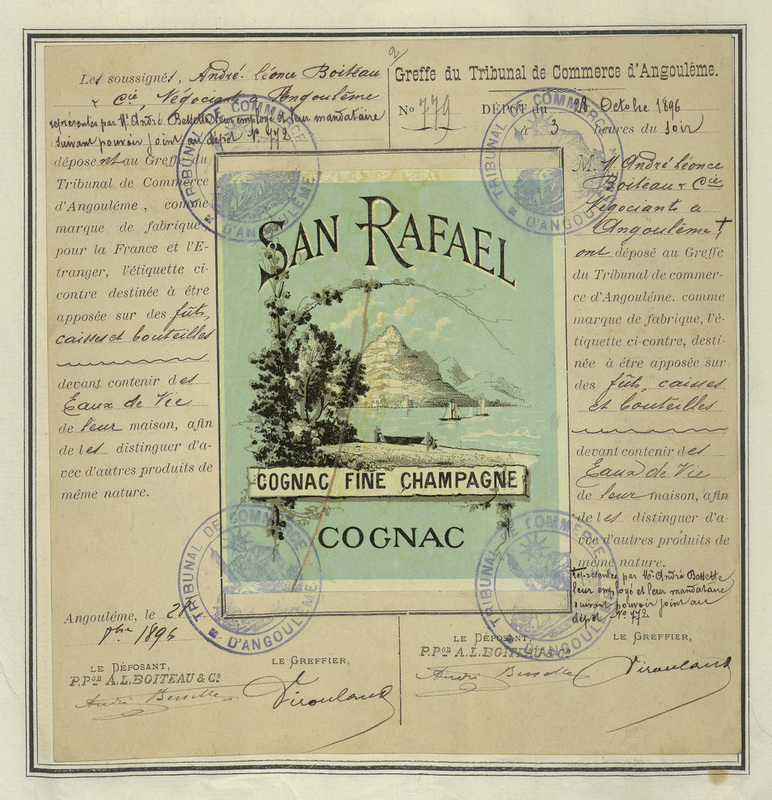 Les soussignés, André-Léonce Boiteau
& Cie, Négociants, Angoulême
représentés par Mr André Bessette leur employé et leur mandataire
suivant pouvoir joint au dépot No 772
déposent au Greffe du
Tribunal de Commerce
d'Angoulême, comme
marque de fabrique
pour la France et l'E-
tranger, l'étiquette ci-
contre destinée à être
apposée sur des fûts,
caisses et bouteilles
devant contenir des
Eaux de Vie
de leur maison, afin
de les distinguer d'a-
vec d'autres produits de
même nature.
Angoulême, le 28
8bre 1896
LE DÉPOSANT,
P.Pon A.L. BOITEAU & Co
André Bessette
LE GREFFIER,
SAN RAFAEL
COGNAC FINE CHAMPAGNE
COGNAC
Greffe du Tribunal de Commerce d'Angoulême.
No 779 DÉPOT du 28 Octobre 1896
à 3 heures du soir
M. André Léonce
Boiteau & Cie
Négociants à
Angoulême †
ont déposé au Greffe
du Tribunal de commer-
ce d'Angoulême. comme
marque de fabrique, l'é-
tiquette ci-contre, desti-
née à être apposée sur
des fûts, caisses
et bouteilles
devant contenir des
Eaux de Vie
de leur maison, afin
de les distinguer d'a-
vec d'autres produits de
même nature.
† représentés par Mr André Bessette
leur employé et leur mandataire
suivant pouvoir joint au
dépot No 772
LE DÉPOSANT,
P.Pon A.L. BOITEAU & Co
André Bessette
LE GREFFIER,
TRIBUNAL DE COMMERCE
D'ANGOULÊME
TRIBUNAL DE COMMERCE
D'ANGOULÊME
TRIBUNAL DE COMMERCE
D'ANGOULÊME
TRIBUNAL DE COMMERCE
D'ANGOULÊME